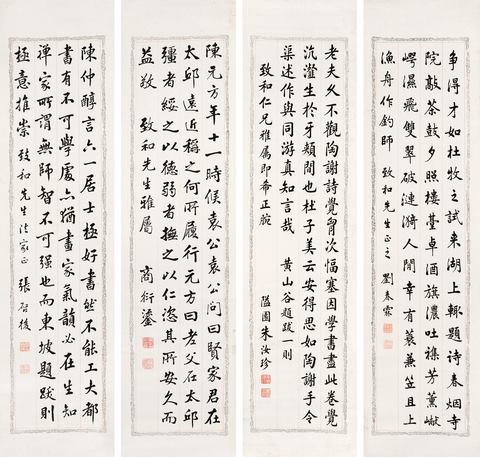 争得才如杜牧之試来湖上輙題诗春烟寺
院敲茶鼓夕照楼臺卓酒旗濃吐襍芳薰巘
崿濕飛雙翠破漣漪人閒幸有蓑兼笠且上
渔舟作釣師 致和先生正之 劉春霖
老夫久不觀陶謝詩覺胷次愊塞因學書盡此卷覺
沆瀣生於牙頰間也杜子美云安得思如陶謝手令
渠述作與同游真知言哉 黄山谷題跋一則
致和仁兄雅属即希正腕
隘園朱汝珍
陳元方年十一時候袁公袁公问曰賢家君在
太邱遠近稱之何所履行元方曰老父在太邱
彊者綏之以德弱者撫之以仁恣其所安久而
益敬 致和先生雅屬 商衍鎏
陳仲醇言六一居士極好書然不能工大都
書有不可學處亦猶畫家氣韻必在生知
禅家所谓無師智不可强也而東坡題跋則
極意推崇 致和先生法家正 張啓後